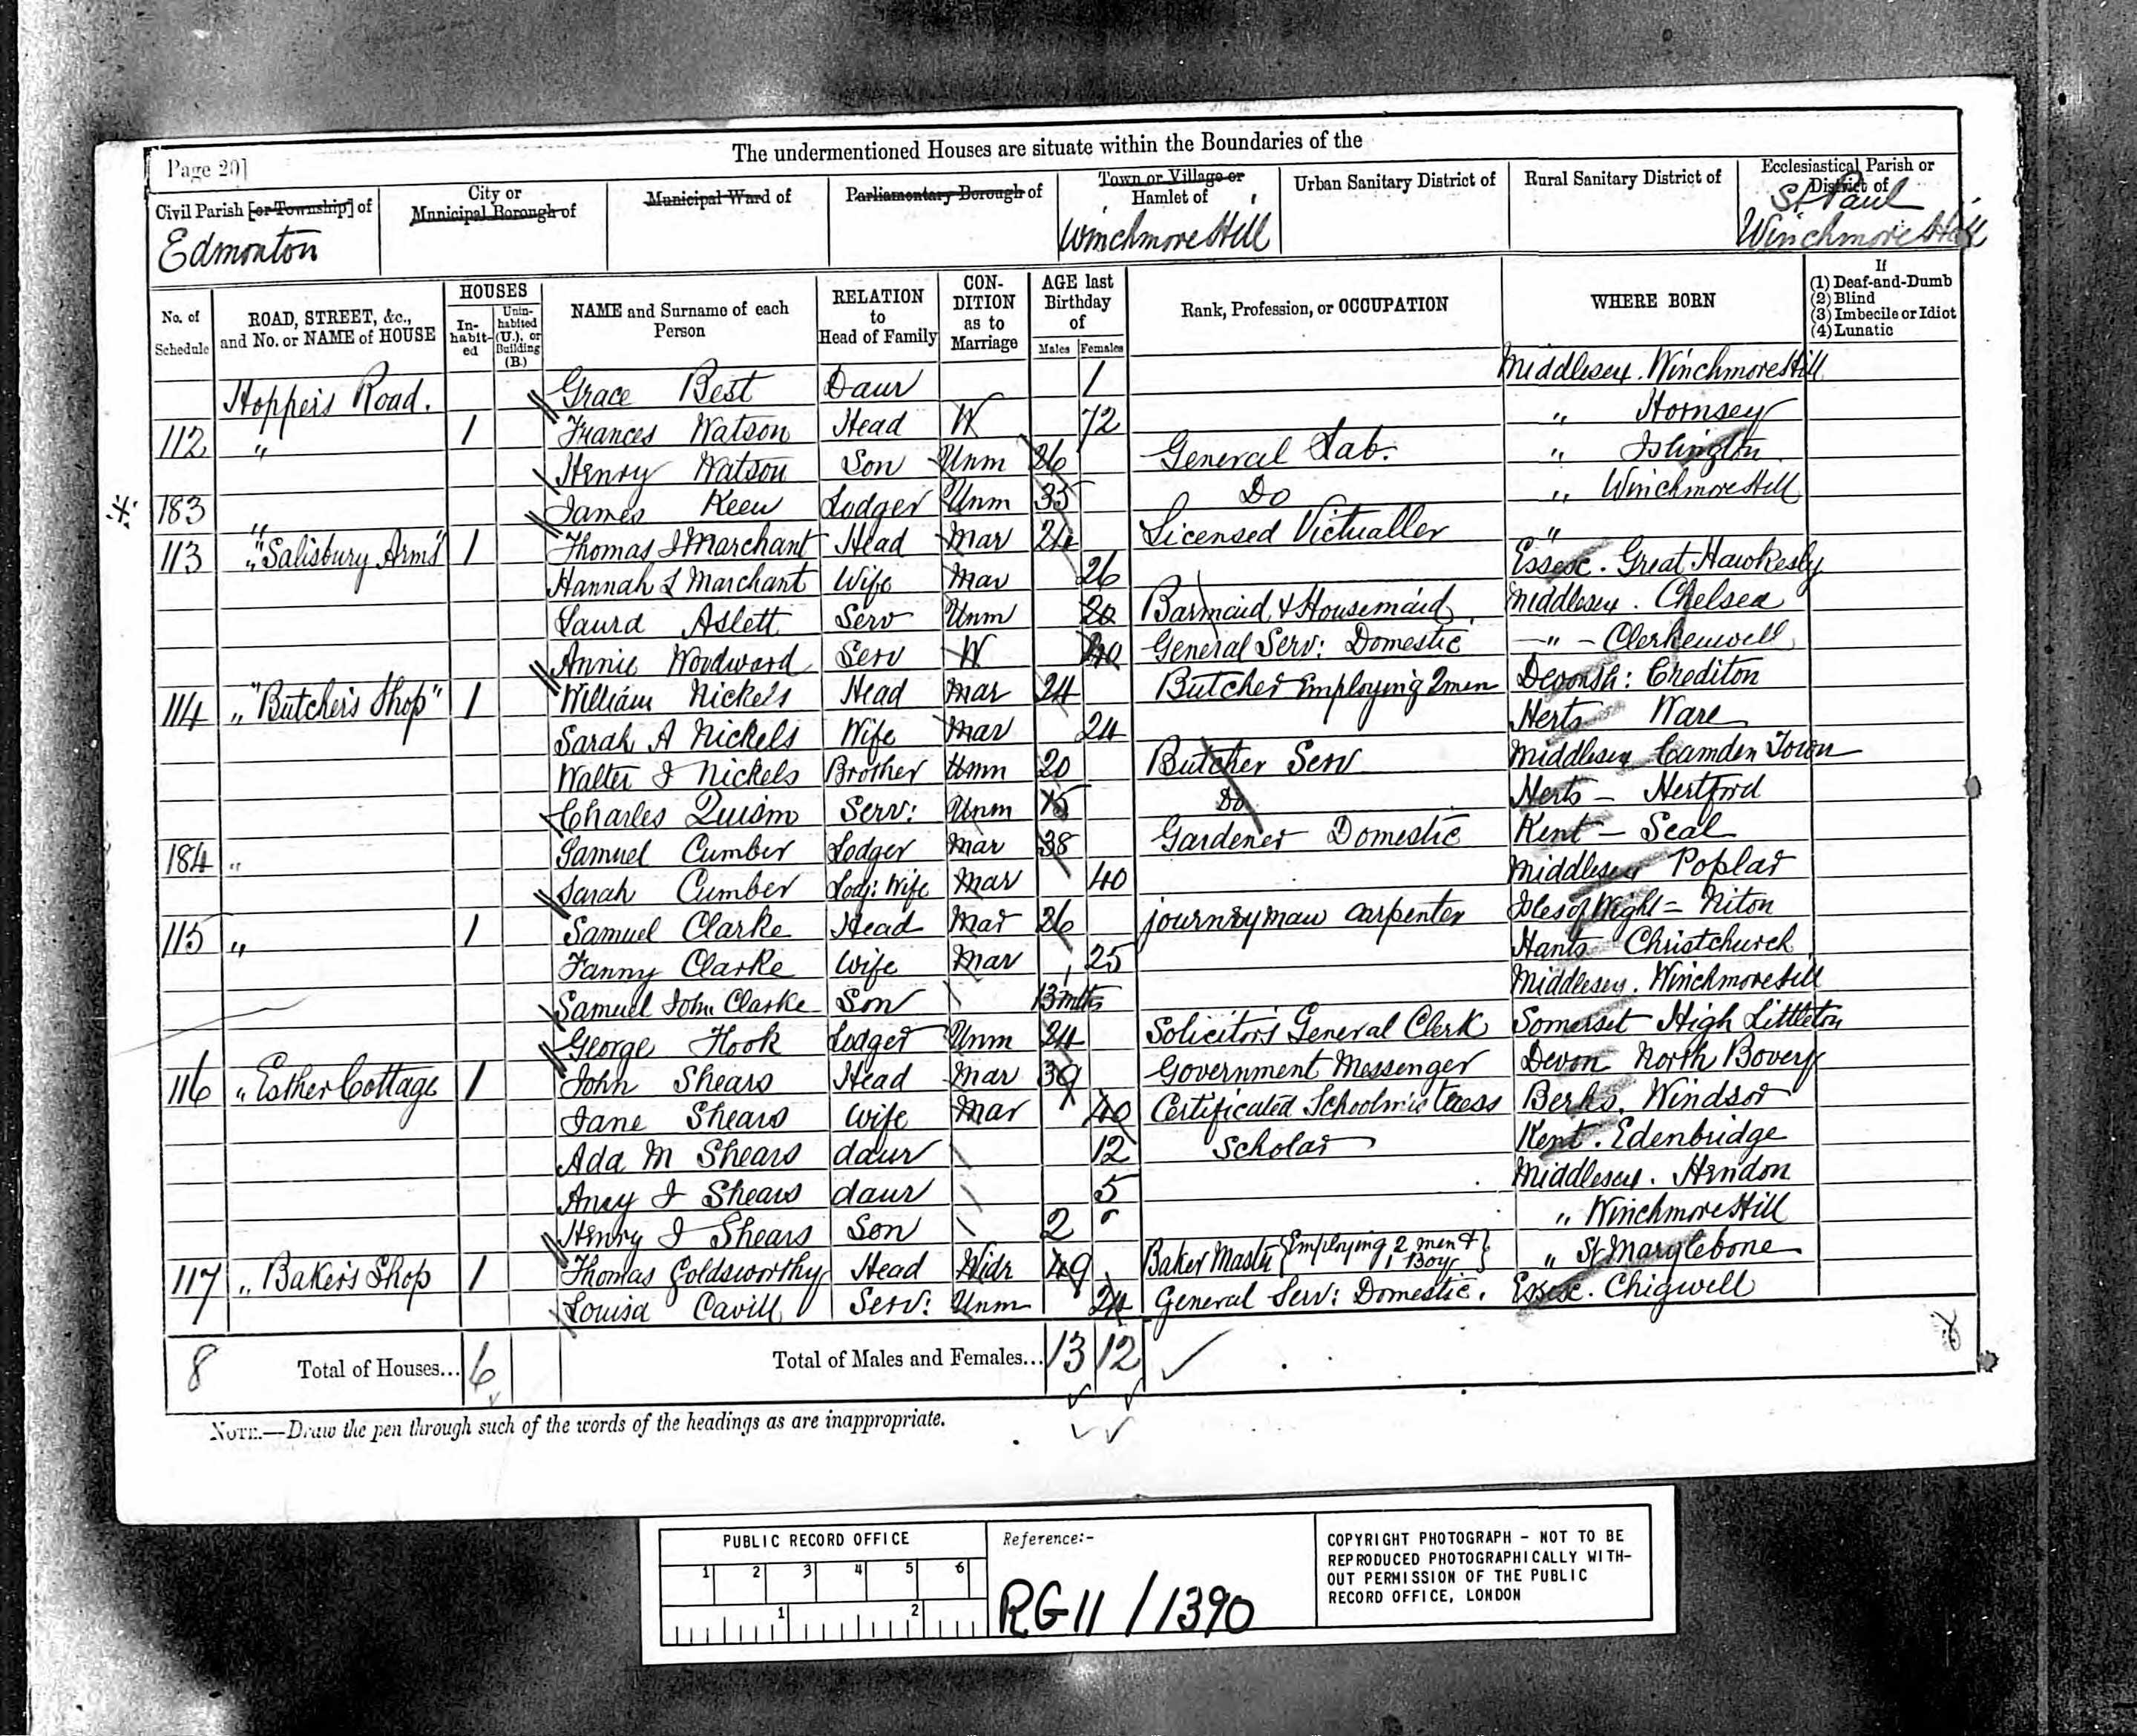 Page 20]
The undermentioned Houses are situate within the Boundaries of the
Civil Parish [or Township] of
Edmonton
City or Municipal Borough of
Municipal Ward of
Parliamentary Borough of
Town or Village or Hamlet of
Winchmore Hill
Urban Sanitary District of
Rural Sanitary District of
Ecclesiastical Parish or District of
St Paul
Winchmore Hill
No. of Schedule
ROAD, STREET, &c., and No. or NAME of HOUSE
HOUSES
In-habit-ed
Unin-habited (U.), or Building (B.)
NAME and Surname of each Person
RELATION to Head of Family
CON-DITION as to Marriage
AGE last Birthday of
Males Females
Rank, Profession, or OCCUPATION
WHERE BORN
If
(1) Deaf-and-Dumb
(2) Blind
(3) Imbecile or Idiot
(4) Lunatic
Hoppers Road. Grace Best Daur 1 Middlesex. Winchmore Hill
112 " 1 Frances Watson Head W 72 " Hornsey
Henry Watson Son Unm 26 General Lab. " Islington
183 " James Keen Lodger Unm 35 Do " Winchmore Hill
113 " "Salisbury Arms" 1 Thomas J Marchant Head Mar 24 Licensed Victualler "
Hannah L Marchant Wife Mar 26 Essex. Great Hawkesly
Laura Aslett Serv Unm 20 Barmaid & Housemaid Middlesex. Chelsea
Annie Woodward Serv W 40 General Serv: Domestic " - Clerkenwell
114 " "Butcher's Shop" 1 William Nickels Head Mar 24 Butcher Employing 2 men Devonsh: Crediton
Sarah A Nickels Wife Mar 24 Herts Ware
Walter J Nickels Brother Unm 20 Butcher Serv Middlesex Camden Town
Charles Serv: Unm 15 Do Herts - Hertford
184 " Samuel Cumber Lodger Mar 38 Gardener Domestic Kent - Seal
Sarah Cumber Lodg: Wife Mar 40 Middlesex Poplar
115 " 1 Samuel Clarke Head Mar 26 journeyman carpenter Isle of Wight = Niton
Fanny Clarke Wife Mar 25 Hants Christchurch
Samuel John Clarke Son 13 mths Middlesex. Winchmore Hill
George Hook Lodger Unm 24 Solicitor's General Clerk Somerset High Littleton
116 " Esther Cottage 1 John Shears Head Mar 39 Government Messenger Devon North Bovey
Jane Shears Wife Mar 40 Certificated Schoolmistress Berks. Windsor
Ada M Shears daur 12 Scholar Kent. Edenbridge
Amy J Shears daur 5 Middlesex. Hendon
Henry J Shears Son 2 " Winchmore Hill
117 " Baker's Shop 1 Thomas Goldsworthy Head Widr 49 Baker Master {Employing 2 men & 1 Boy} " St Marylebone
Louisa Cavill Serv: Unm 24 General Serv: Domestic. Essex. Chigwell
8 Total of Houses... 6 Total of Males and Females... 13 12
NOTE.—Draw the pen through such of the words of the headings as are inappropriate.
PUBLIC RECORD OFFICE
1 2 3 4 5 6
1 2
Reference:-
RG11/1390
COPYRIGHT PHOTOGRAPH - NOT TO BE
REPRODUCED PHOTOGRAPHICALLY WITH-
OUT PERMISSION OF THE PUBLIC
RECORD OFFICE, LONDON